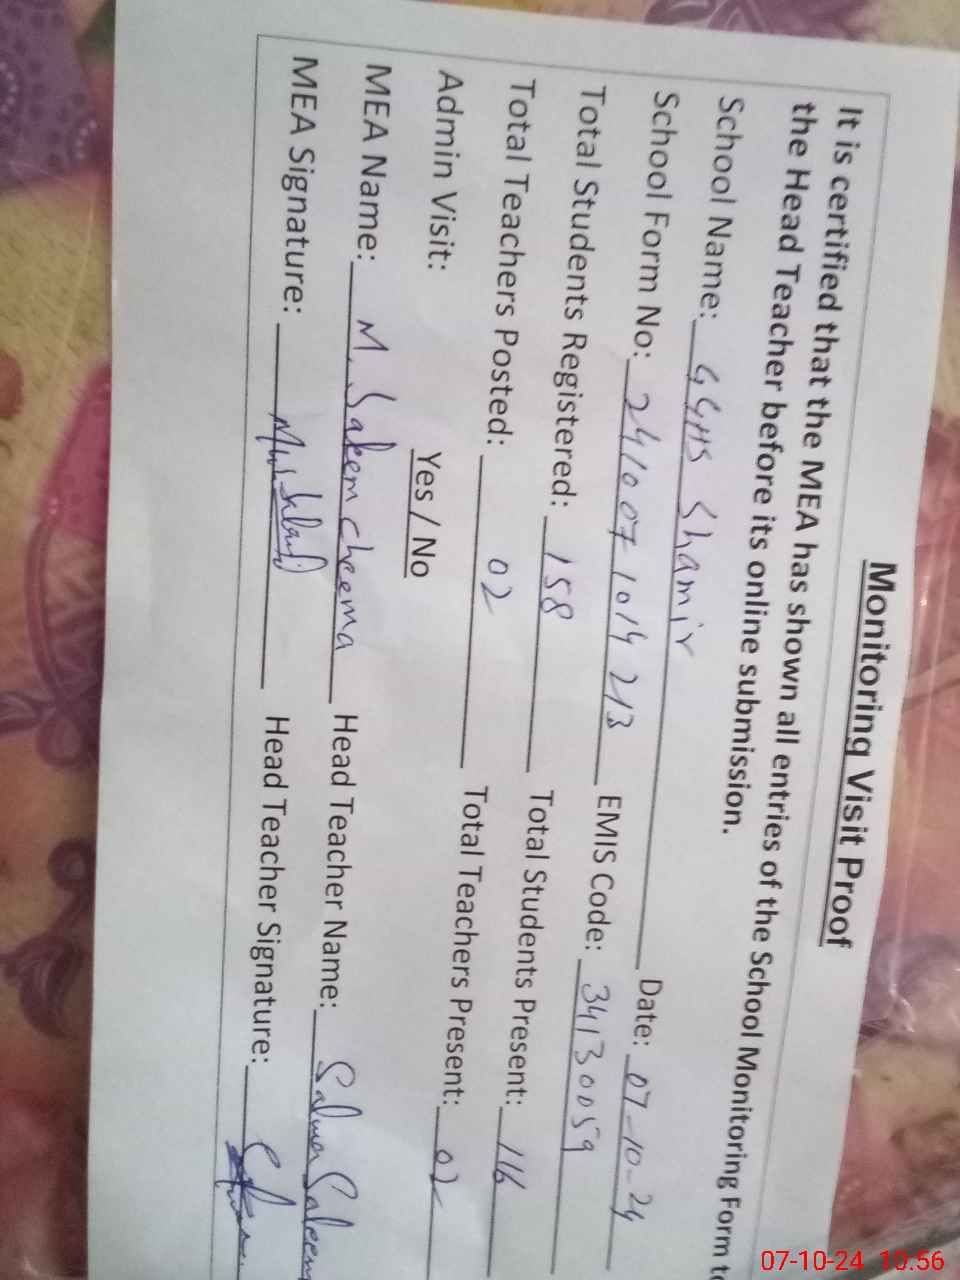 Monitoring Visit Proof
It is certified that the MEA has shown all entries of the School Monitoring Form to
the Head Teacher before its online submission.
School Name: GGHS Shamir Date: 07-10-24
School Form No: 241007 1014 213 EMIS Code: 34130059
Total Students Registered: 158 Total Students Present: 116
Total Teachers Posted: 02 Total Teachers Present: 02
Admin Visit: Yes / No
MEA Name: M. Saleem Cheema Head Teacher Name: Salma Saleem
MEA Signature: Head Teacher Signature:
07-10-24 10:56